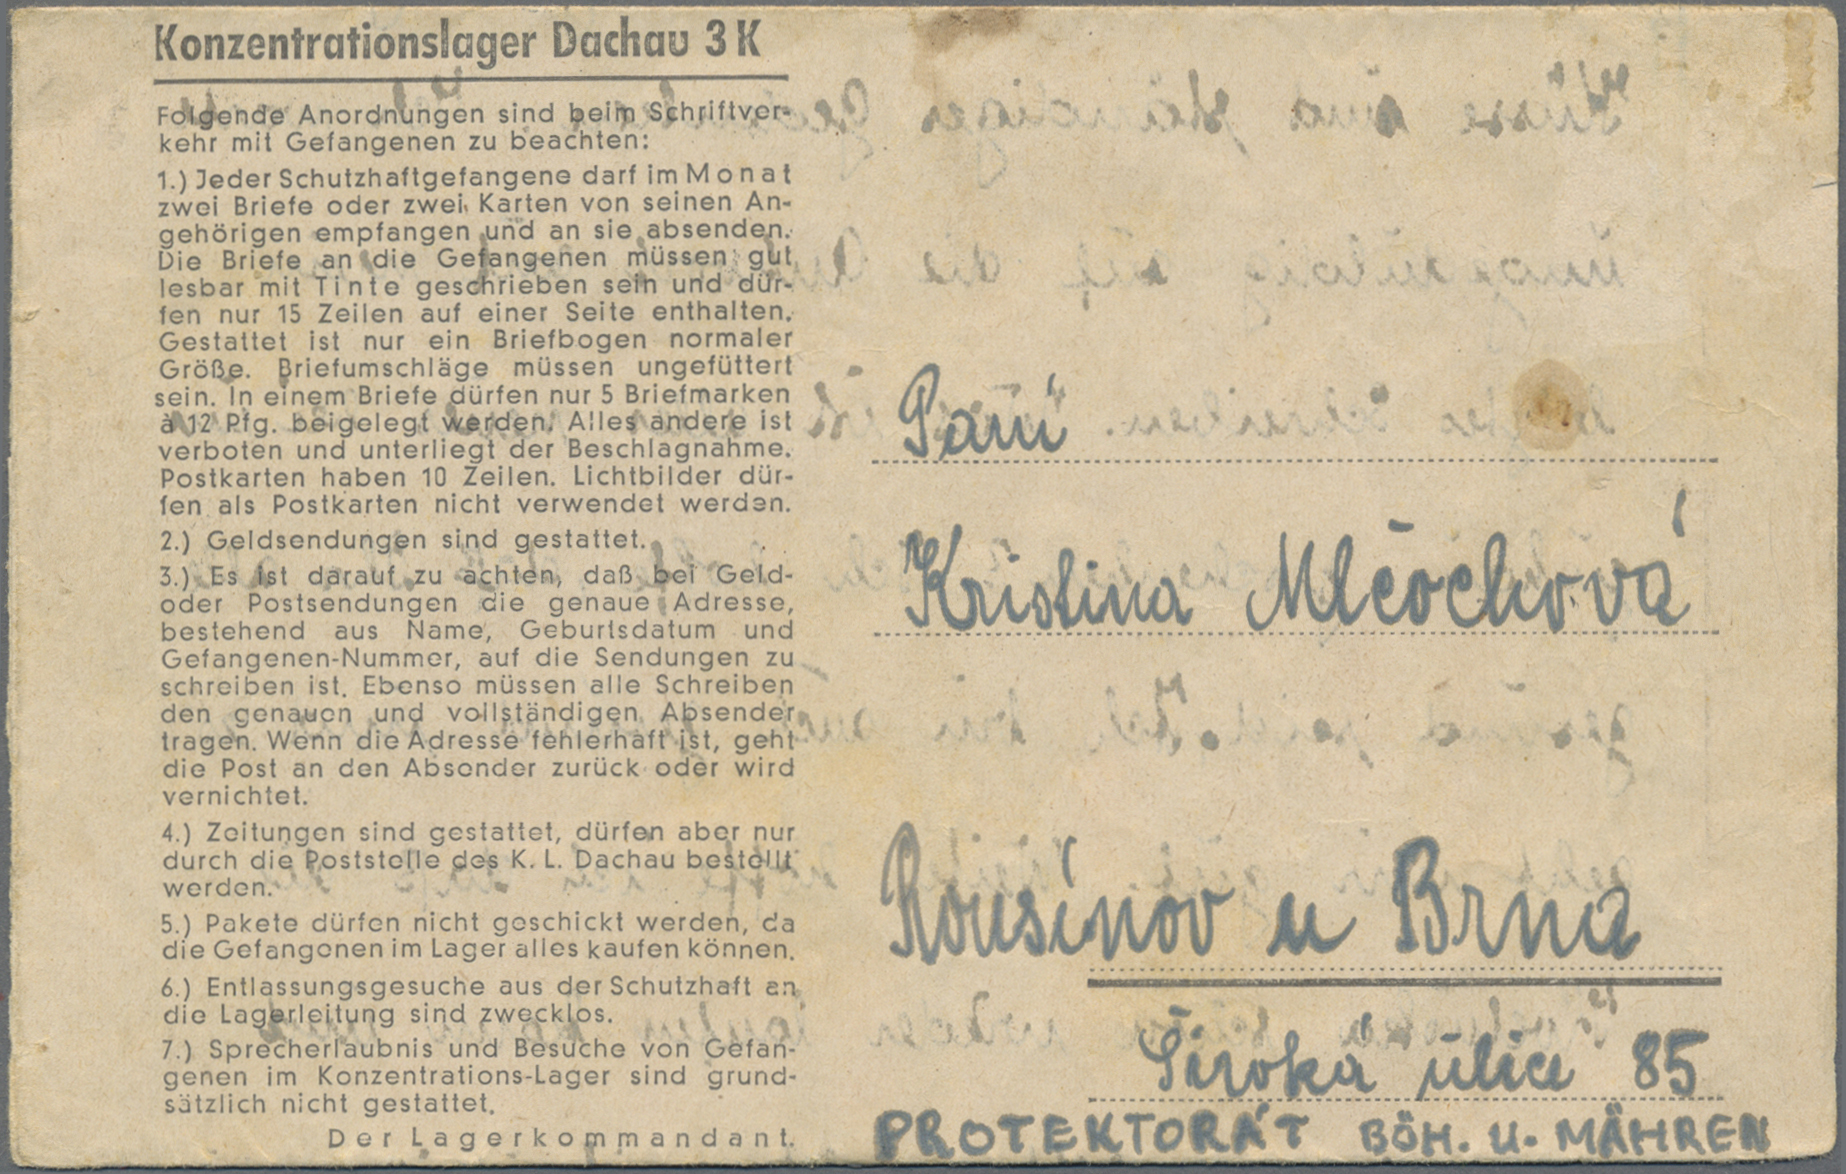 Konzentrationslager Dachau 3 K
Folgende Anordnungen sind beim Schriftver-
kehr mit Gefangenen zu beachten:
1.) Jeder Schutzhaftgefangene darf im Monat
zwei Briefe oder zwei Karten von seinen An-
gehörigen empfangen und an sie absenden.
Die Briefe an die Gefangenen müssen gut
lesbar mit Tinte geschrieben sein und dür-
fen nur 15 Zeilen auf einer Seite enthalten.
Gestattet ist nur ein Briefbogen normaler
Größe. Briefumschläge müssen ungefüttert
sein. In einem Briefe dürfen nur 5 Briefmarken
à 12 Pfg. beigelegt werden. Alles andere ist
verboten und unterliegt der Beschlagnahme.
Postkarten haben 10 Zeilen. Lichtbilder dür-
fen als Postkarten nicht verwendet werden.
2.) Geldsendungen sind gestattet.
3.) Es ist darauf zu achten, daß bei Geld-
oder Postsendungen die genaue Adresse,
bestehend aus Name, Geburtsdatum und
Gefangenen-Nummer, auf die Sendungen zu
schreiben ist. Ebenso müssen alle Schreiben
den genauen und vollständigen Absender
tragen. Wenn die Adresse fehlerhaft ist, geht
die Post an den Absender zurück oder wird
vernichtet.
4.) Zeitungen sind gestattet, dürfen aber nur
durch die Poststelle des K. L. Dachau bestellt
werden.
5.) Pakete dürfen nicht geschickt werden, da
die Gefangenen im Lager alles kaufen können.
6.) Entlassungsgesuche aus der Schutzhaft an
die Lagerleitung sind zwecklos.
7.) Sprecherlaubnis und Besuche von Gefan-
genen im Konzentrations-Lager sind grund-
sätzlich nicht gestattet.
Der Lagerkommandant.
Paní
Kristina Mlčochová
Rousínov u Brna
Široká ulice 85
PROTEKTORÁT BÖH. U. MÄHREN